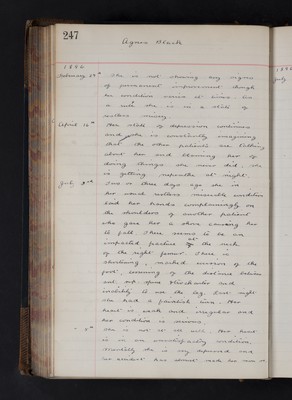 247
Agnes Black
1896
February 5th She is not showing any signs
of permanent improvement though
her condition varies at times. As
a rule she is in a state of
restless misery.
April 16th Her state of depression continues
and she is constantly imagining
that the other patients are talking
about her and blaming her for
doing things she never did. She
is getting at night.
July 3rd Two or three days ago she in
her usual restless miserable condition
laid her hands complainingly on
the shoulders of another patient
who gave her a shove causing her
to fall. There seems to be an
impacted fracture at the neck
of the right femur. There is
shortening, marked eversion of the
foot, lessening of the distance between
ant. sup. spine Trochanter and
inability to use the leg. Last night
she had a feverish time. Her
heart is weak and irregular and
her condition is serious.
5th She is not at all well. Her heart
is in an unsatisfactory condition.
Mentally she is very depressed and
her accident has made her
1896
July